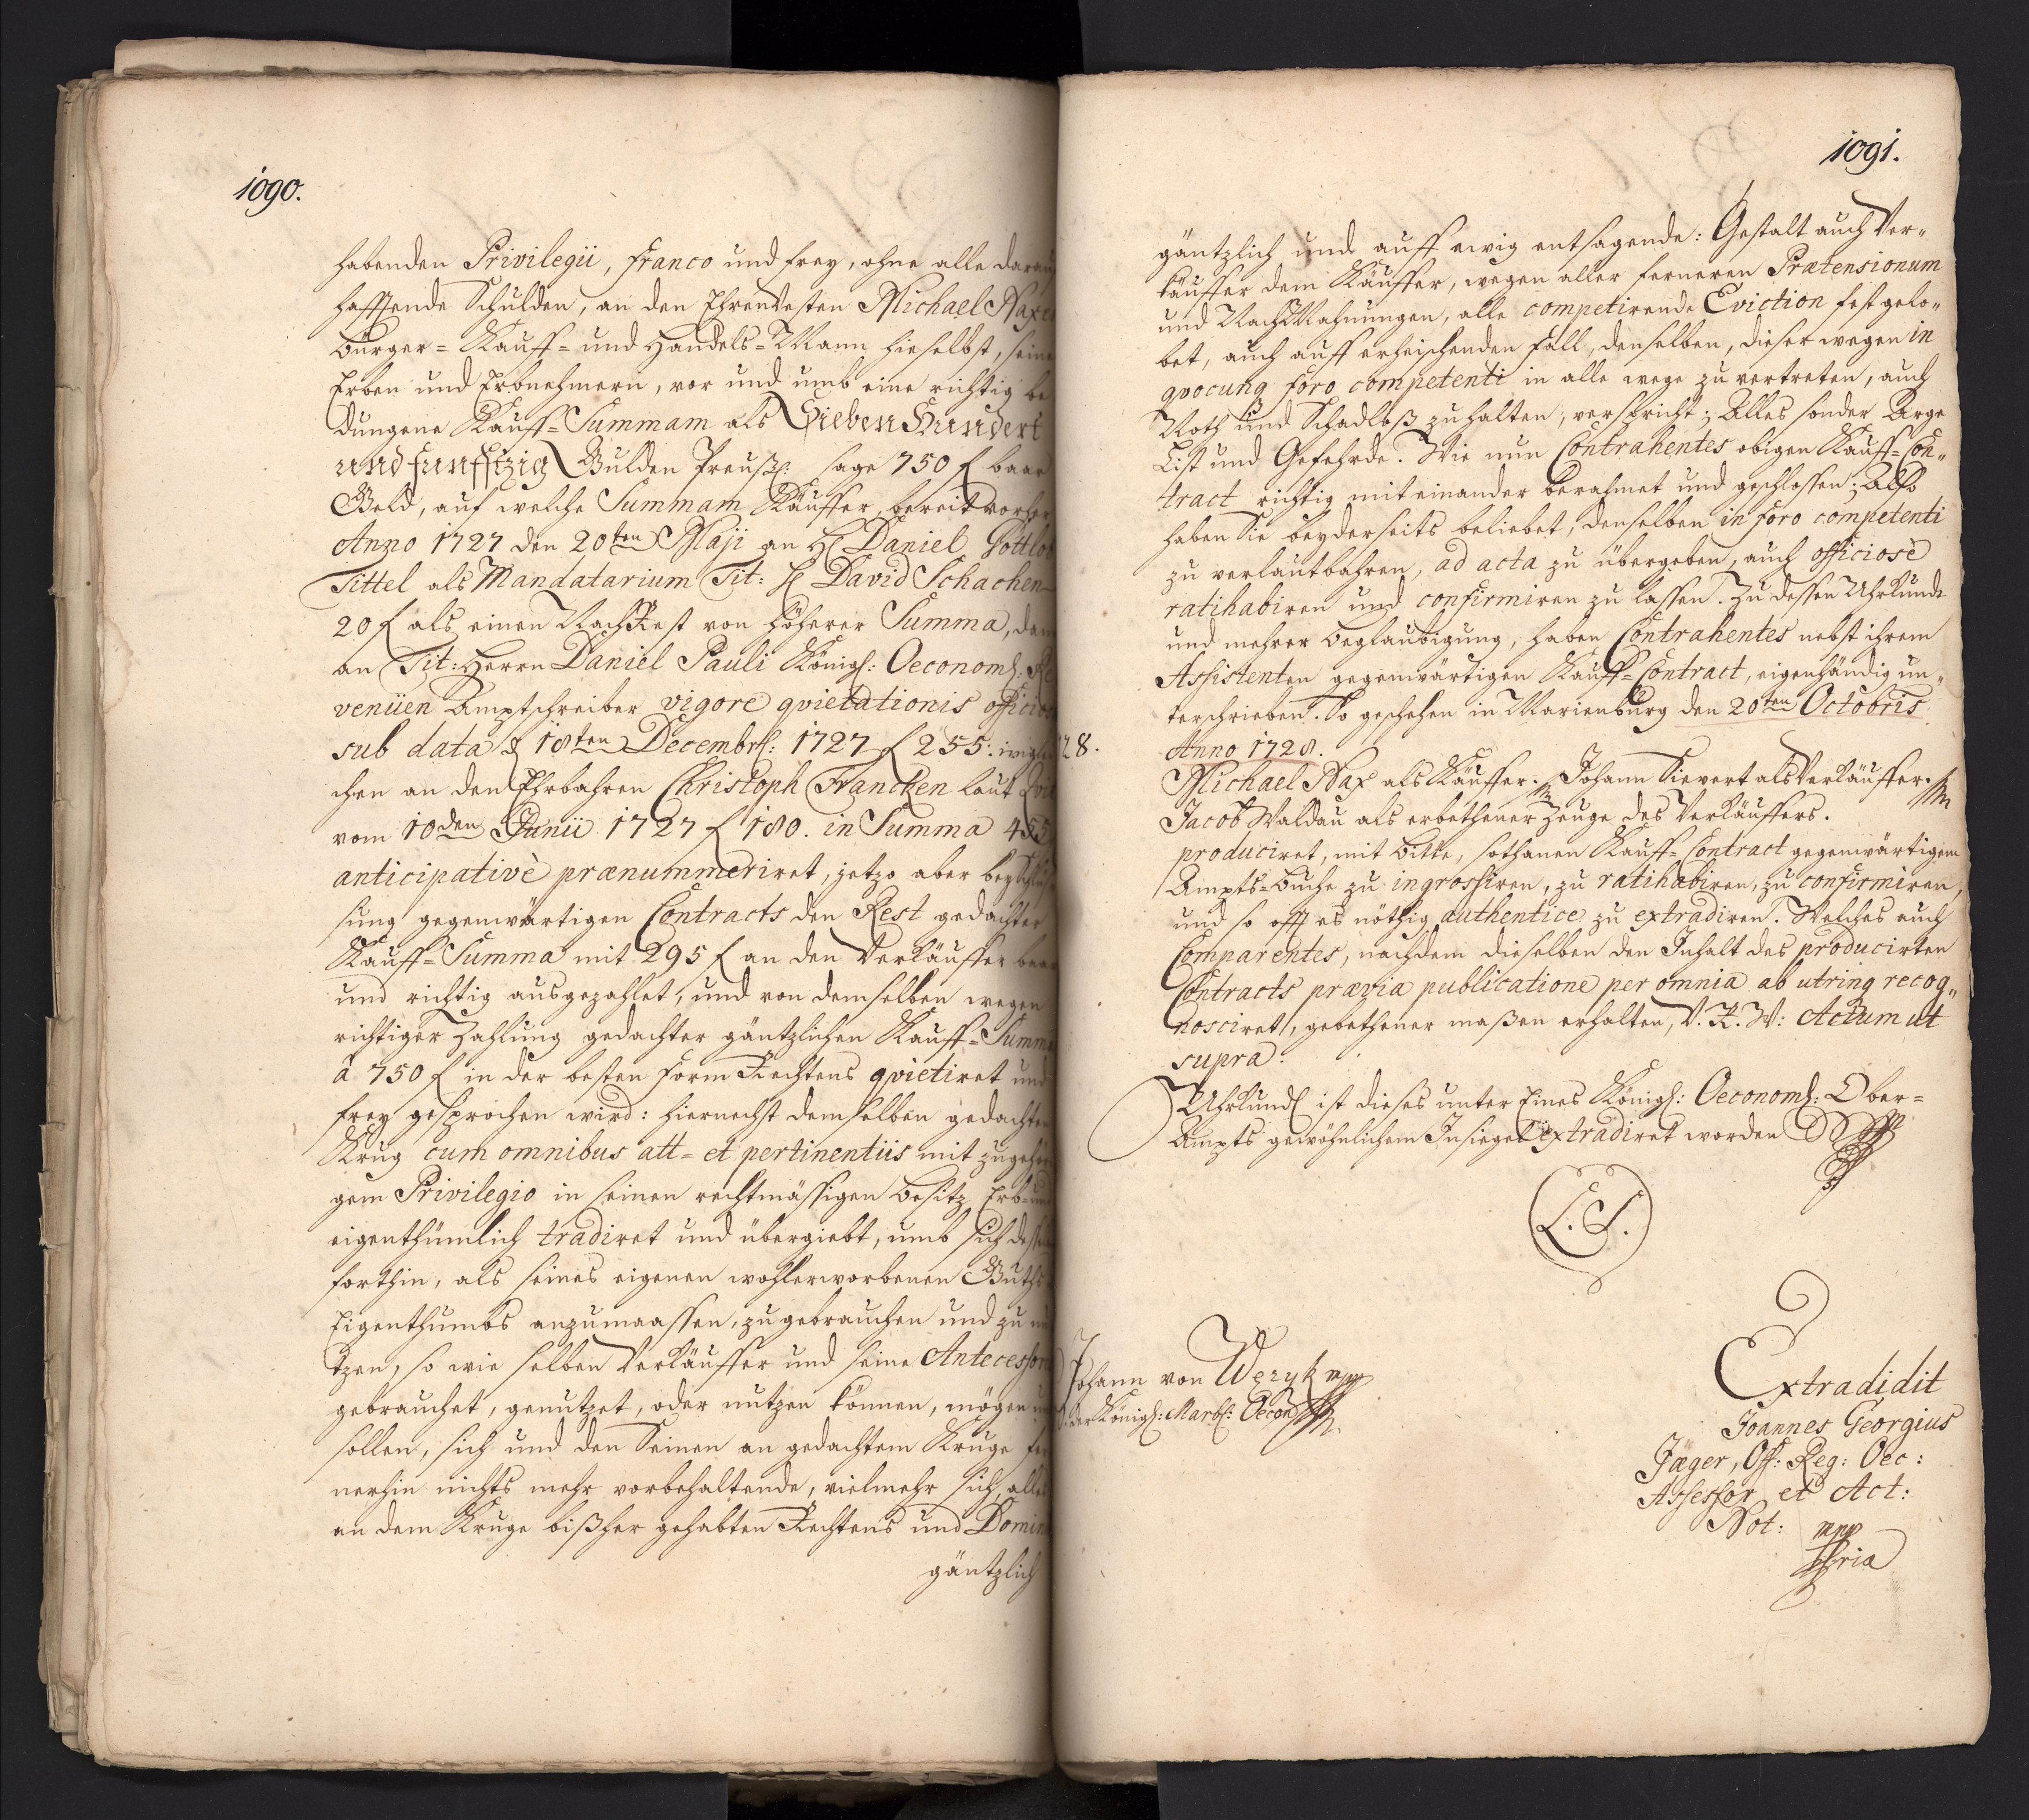 1090.
habenden Privilegii, franco und frey, ohne alle darau
hafftende Schulden, an den Ehrenvesten Michael Naxe
Bürger- Kauff- und Handels-Mann hieselbst, seine
Erben und Erbnehmern, vor und umb eine richtig be
dungene Kauff-Summam als Sieben Hundert
und funfftzig Gulden Preuß: sage 750 f baar
Geld, auf welche Summam Käuffer bereit vorher
Anno 1727 den 20ten Maji an H Daniel Gottlob
Tittel als Mandatarium Tit: H David Schachen
20 f als einen NachRest von höherer Summa, dan
an Tit: Herrn Daniel Pauli Königl: Oeconoml: Re
venüen Amptschreiber vigore qvietationis officio
sub data d 18ten Decembrl: 1727 f 255: ingl
chen an den Ehrbahren Christoph Francken laut Qvi
vom 10den Junii 1727 f 180. in Summa 455
anticipativè prænummeriret, jetzo aber bey Schlüs
sung gegenwärtigen Contracts den Rest gedachter
Kauff-Summa mit 295 f an den Verkäuffer baar
und richtig ausgezahlet, und von demselben wegen
richtiger Zahlung gedachter gäntzlichen Kauff-Summa
à 750 f in der besten Form Rechtens qvietiret und
frey gesprochen wird: hiernechst demselben gedachten
Krug cum omnibus att- et pertinentiis mit zugehöri
gem Privilegio in seinen rechtmässigen Besitz Erb- und
eigenthümlich tradiret und übergiebt, umb sich dessen
forthin, als seines eigenen wohlerworbenen Guths
Eigenthumbs anzumaassen, zu gebrauchen und zu nu
tzen, so wie selben Verkäuffer und seine Antecessor
gebrauchet, genutzet, oder nutzen können, mögen u
sollen, sich und den Seinen an gedachtem Kruge fer
nerhin nichts mehr vorbehaltende, vielmehr sich alles
an dem Kruge bißher gehabten Rechtens und Domin
gäntzlich
1091.
gäntzlich und auff ewig entsagende: Gestalt auch Ver-
käuffer dem Käuffer, wegen aller ferneren Prætensionum
und NachMahnungen, alle competirende Eviction fest gelo-
bet, auch auff erheischenden fall, denselben, dieser wegen in
qvocunq foro competenti in alle wege zu vertreten, auch
Noth und Schadloß zu halten, verspricht; Alles sonder Arge
List und Gefehrde. Wie nun Contrahentes obigen Kauff-Con-
tract richtig mit einander berahmet und geschlossen; Also
haben Sie beyderseits beliebet, denselben in foro competenti
zu verlautbahren, ad acta zu übergeben, auch officiosè
ratihabiren und confirmiren zu lassen. Zu dessen Uhrkunde
und mehrer beglaubigung, haben Contrahentes nebst ihrem
Assistenten gegenwärtigen Kauff-Contract, eigenhändig un-
terschrieben. So geschehen in Marienburg den 20ten Octobris
28. Anno 1728.
Michael Nax als Käuffer. Johann Sievert als Verkäuffer.
Jacob Waldau als erbethener Zeuge des Verkäuffers.
produciret, mit bitte, sothanen Kauff-Contract gegenwärtigem
Ampts-Buche zu ingrossiren, zu ratihabiren, zu confirmiren,
und so offt es nöthig authentice zu extradiren. Welches auch
Comparentes, nachdem dieselben den Inhalt des producirten
Contracts prævia publicatione per omnia ab utrinq recog-
nosciret, gebethener maßen erhalten, V. R. W: Actum ut
supra.
Uhrkundl ist dieses unter Eines Königl: Oeconoml: Ober-
Ampts gewöhnlichem Insiegel extradiret worden
L. S.
Johann von Węzyk mpp
der Königl: Marbl: Oecon
Extradidit
Joannes Georgius
Jæger, Off: Reg: Oec:
Assessor et Act:
Not: mpp
pria